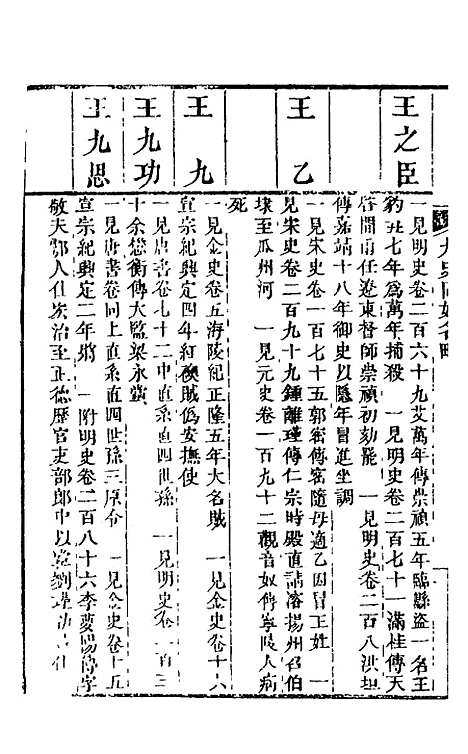 王之臣
一見明史卷二百六十九艾萬年傳崇禎五年臨縣盜一名王
豹五七年爲萬年捕殺　一見明史卷二百七十一滿桂傳天
啓間甫任遼東督師崇禎初劾罷　一見明史卷二百八洪垣
傳嘉靖十八年御史以隱年冒進坐調
王乙
一見宋史卷一百七十五郭密傳密隨母適乙因冒王姓　一
見宋史卷二百九十九鍾離瑾傳仁宗時殿直請濬揚州召伯
埭至瓜州河　一見元史卷一百九十二觀音奴傳寧陵人病
死
王九
一見金史卷五海陵紀正隆五年大名賊　一見金史卷十六
宣宗紀興定四年紅襖賊僞安撫使
王九功
一見唐書卷七十二中直系直四世孫　一見明史卷一百三
十余懋衡傳大監梁永黨
王九思
一見唐書卷同上直系直四世孫三原令　一見金史卷十五
宣宗紀興定二年將　一附明史卷二百八十六李夢陽傳字
敬夫鄠人仕弘治至正德歷官吏部郎中以黨劉瑾